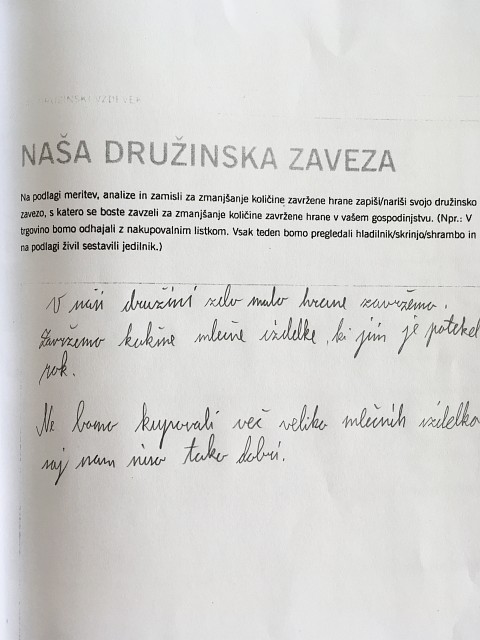 DRUŽINSKI IZDELEK
NAŠA DRUŽINSKA ZAVEZA
Na podlagi meritev, analize in zamisli za zmanjšanje količine zavržene hrane zapiši/nariši svojo družinsko
zavezo, s katero se boste zavzeli za zmanjšanje količine zavržene hrane v vašem gospodinjstvu. (Npr.: V
trgovino bomo odhajali z nakupovalnim listkom. Vsak teden bomo pregledali hladilnik/skrinjo/shrambo in
na podlagi živil sestavili jedilnik.)
V naši družini zelo malo hrane zavržemo.
Zavržemo kakšne mlečne izdelke, ki jim je potekel
rok.
Ne bomo kupovali več veliko mlečnih izdelko
saj nam niso tako dobri.